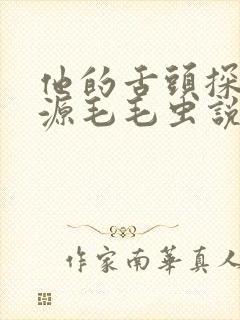 他的舌頭探
源毛毛虫説
作家南華真人